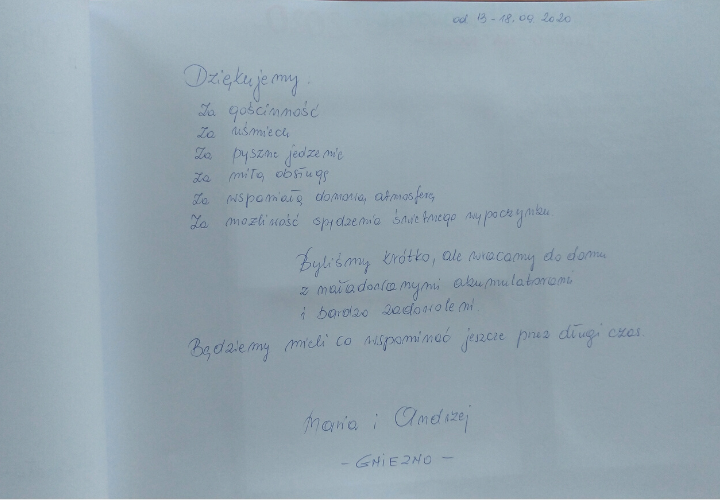 od 13-18.09.2020
Dziękujemy.
Za gościnność
Za uśmiech
Za pyszne jedzenie
Za miłą obsługę
Za wspaniałą domową atmosferę
Za możliwość spędzenia świetnego wypoczynku.
Byliśmy krótko, ale wracamy do domu
z naładowanymi akumulatorami
i bardzo zadowoleni.
Będziemy mieli co wspominać jeszcze przez długi czas.
Maria i Andrzej
- GNIEZNO -